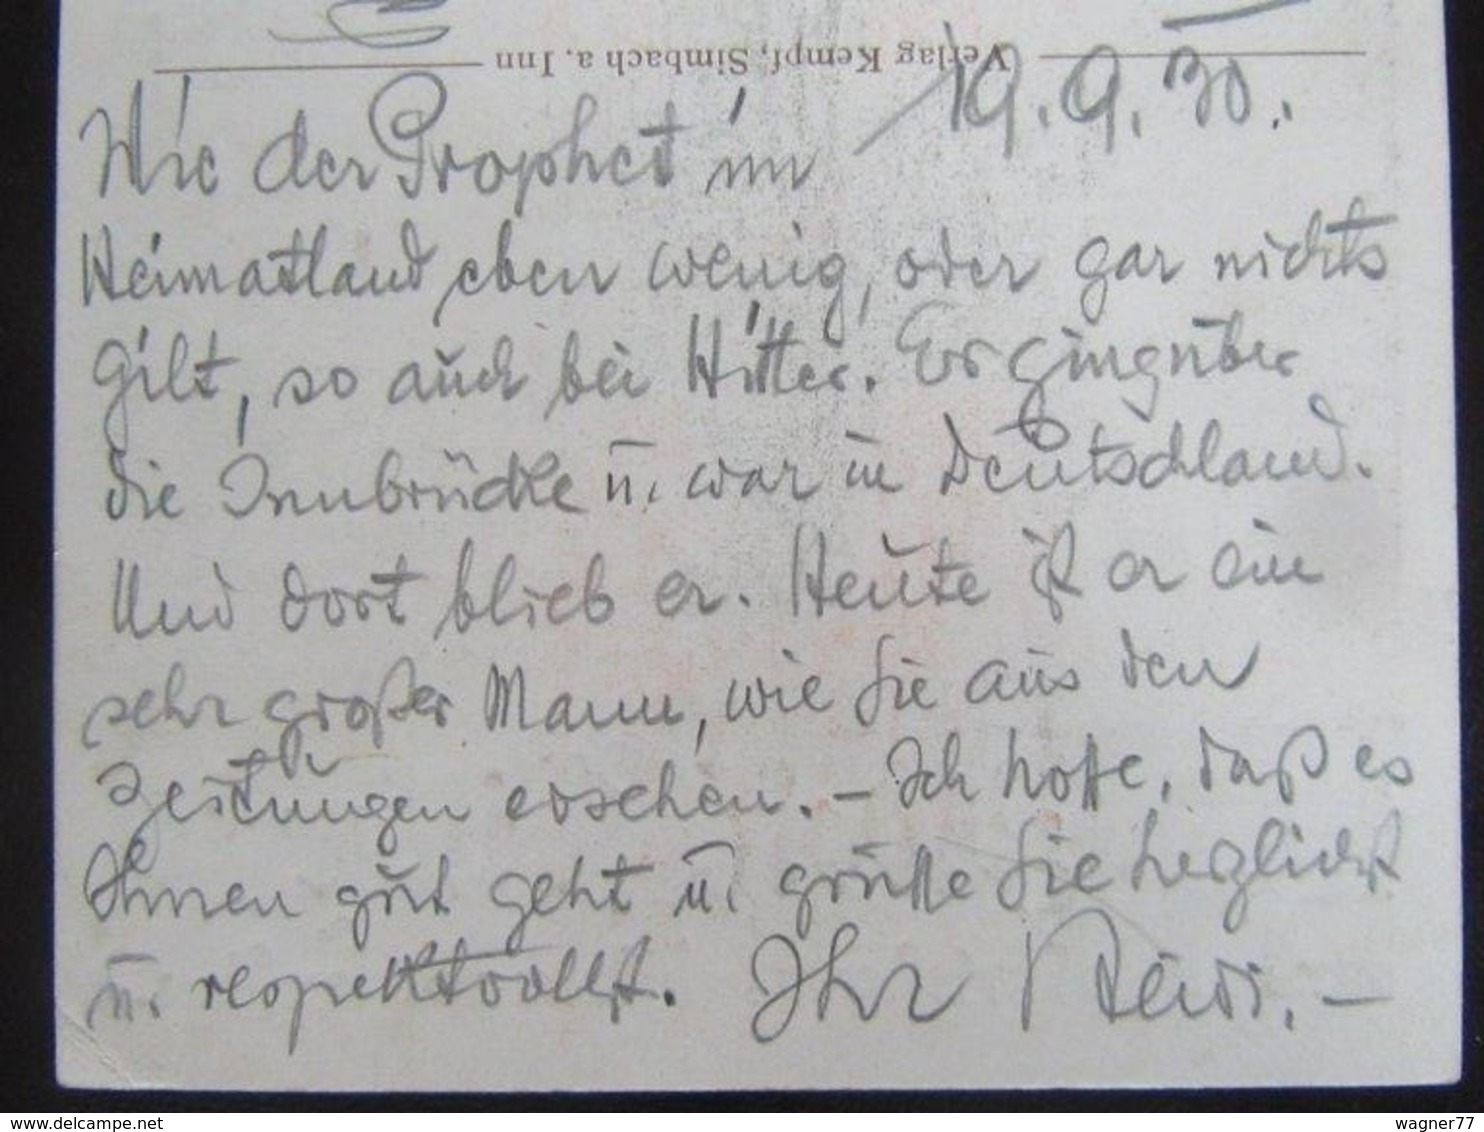 Verlag Kempf, Simbach a. Inn
19. 9. 30.
Wie der Prophet im
Heimatland eben wenig, oder gar nichts
gilt, so auch bei Hitler. Er ging über
die Innbrücke u. war in Deutschland.
Und dort blieb er. Heute ist er ein
sehr großer Mann, wie Sie aus den
Zeitungen ersehen. – Ich hoffe, daß es
Ihnen gut geht u. grüße Sie herzlichst
u. respektvollst. Ihr
www.delcampe.net
wagner77